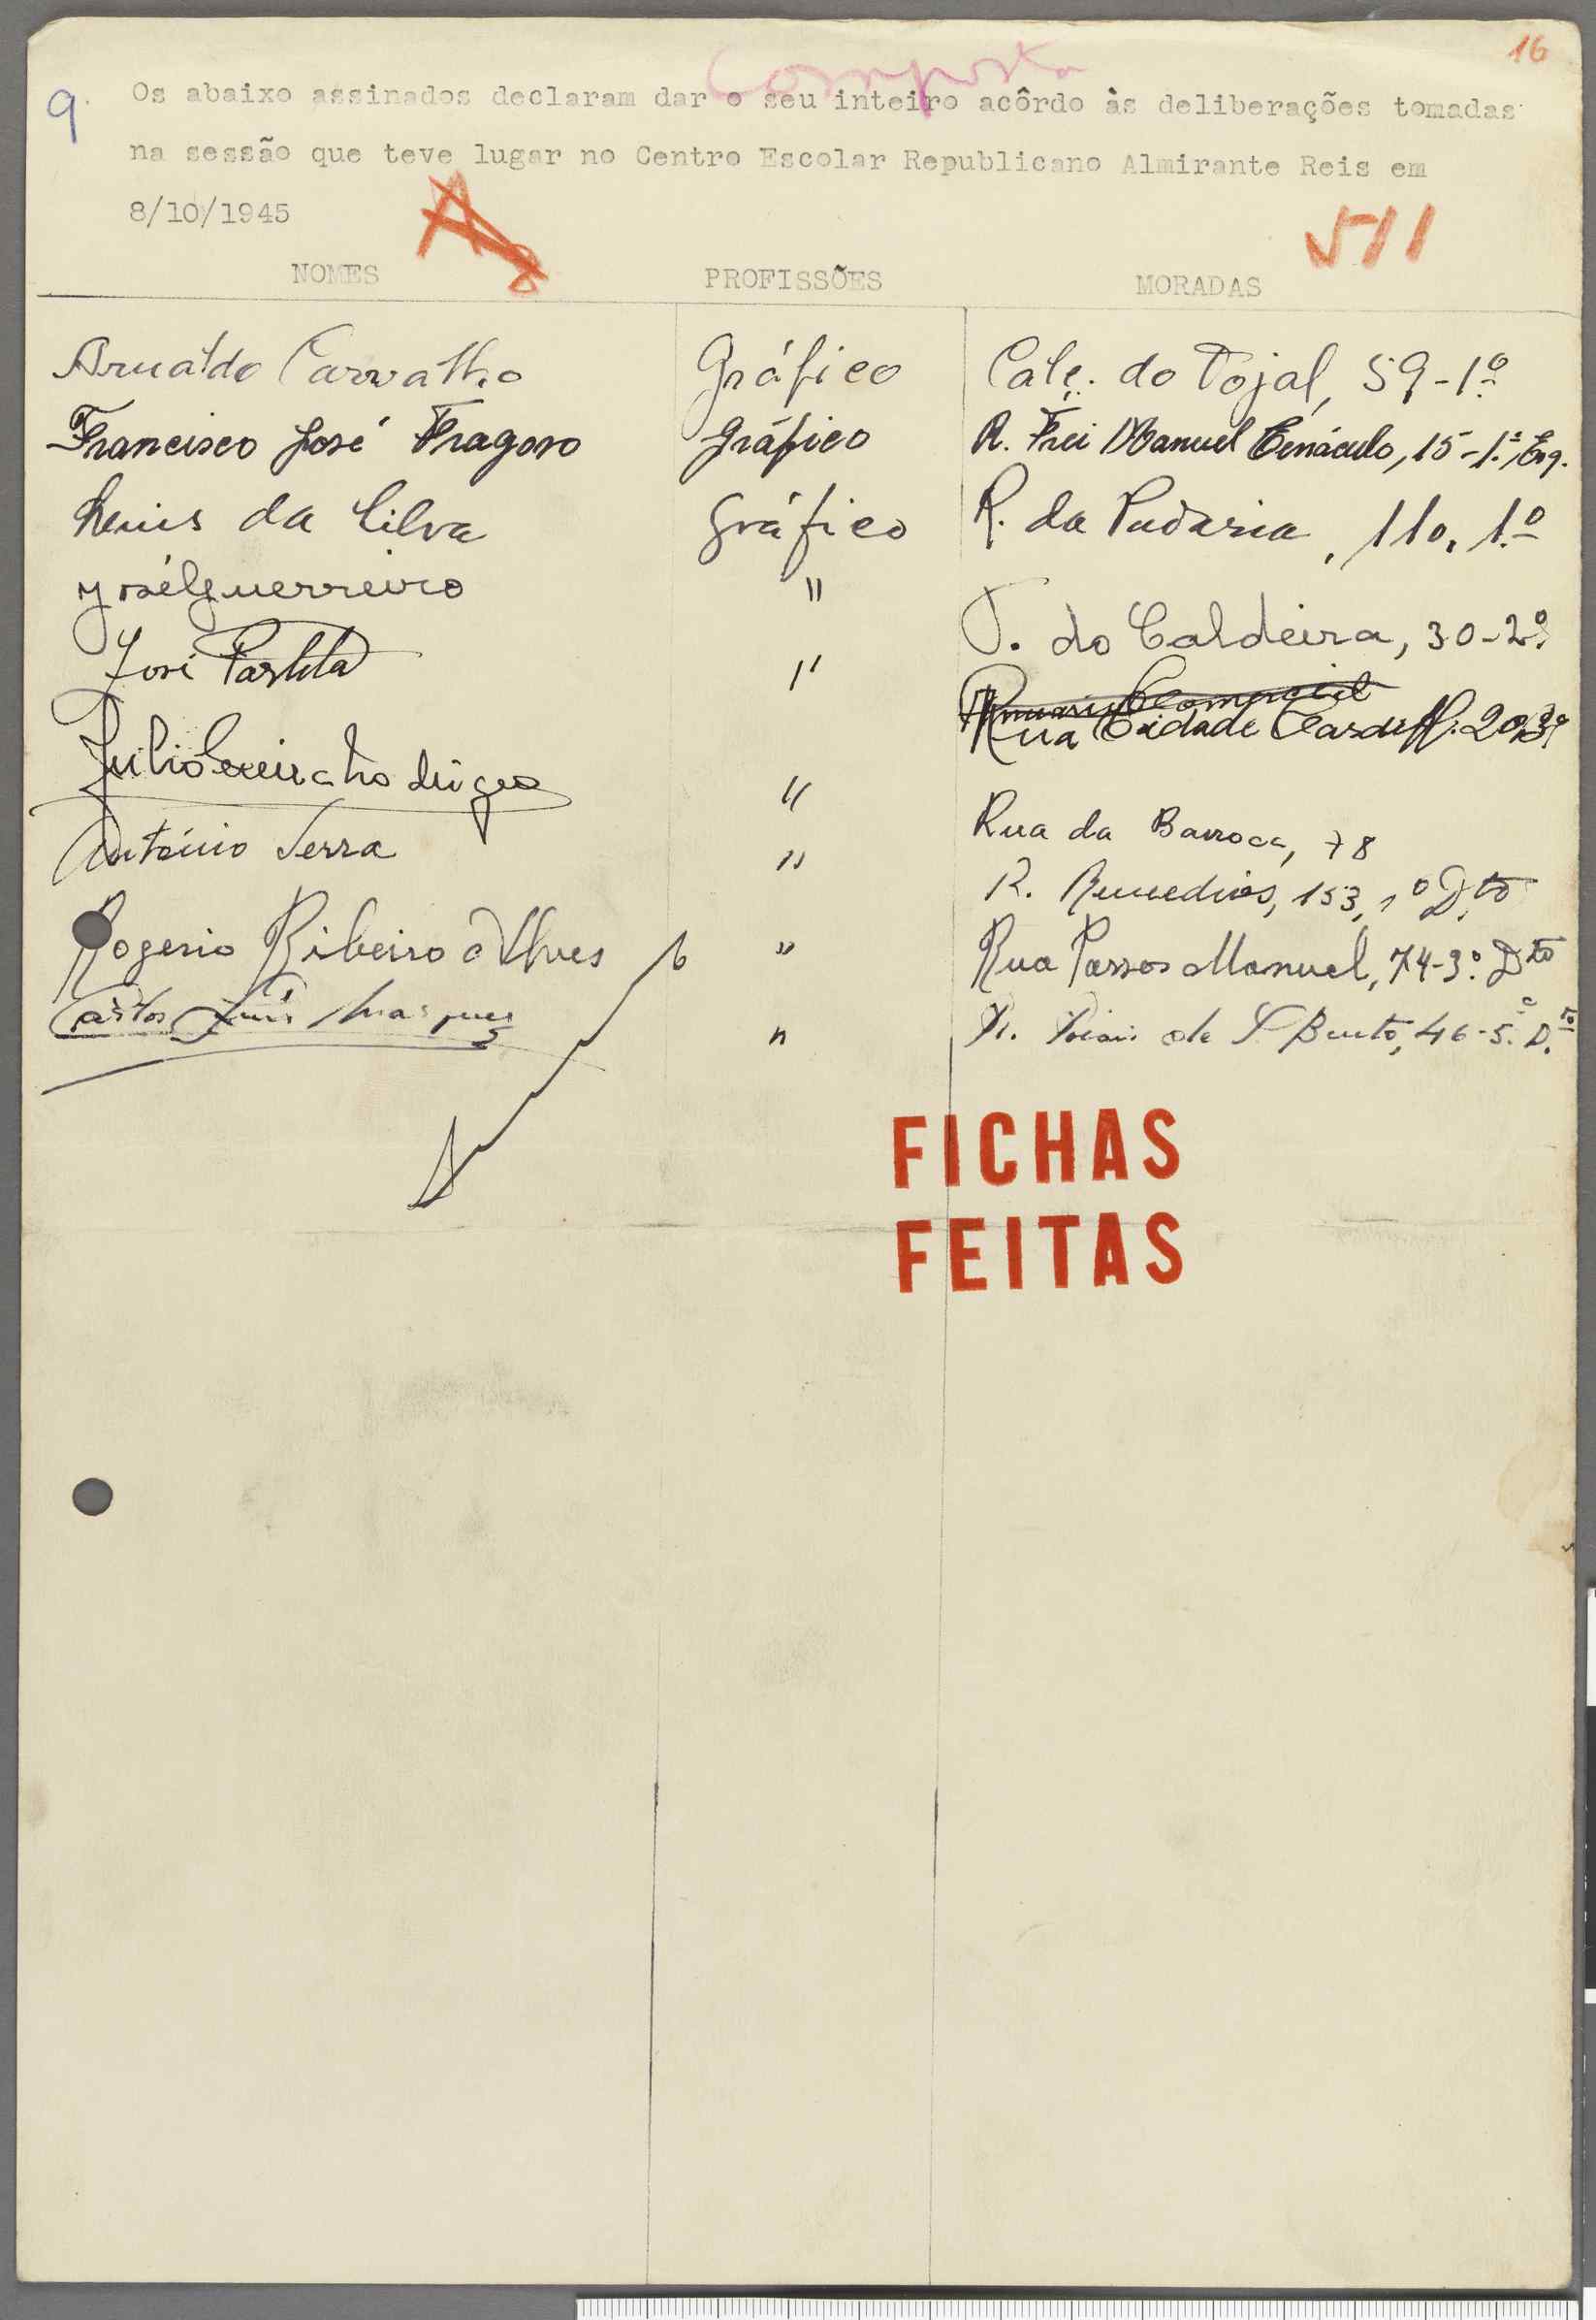 16
Composta
9. Os abaixo assinados declaram dar o seu inteiro acôrdo às deliberações tomadas
na sessão que teve lugar no Centro Escolar Republicano Almirante Reis em
8/10/1945
511
NOMES PROFISSÕES MORADAS
Arnaldo Carvalho Gráfico Calç. do Tojal, 59-1º
Francisco José Fragoso Gráfico R. Frei Manuel Cenáculo, 15-1.º, Esq.
Luis da Silva Gráfico R. da Padaria, 110, 1.º
José Guerreiro " T. do Caldeira, 30-2º
José " Rua Cidade Cardiff. 20, 3º
Julio Rodrigues " Rua da Barroca, 78
António Serra " R. Remedios, 153, 1º D.to
Rogerio Ribeiro Alves " Rua Passos Manuel, 74-3.º Dto
Carlos Luís Marques " R. Poiais de S. Bento, 46-5.º D.to
FICHAS
FEITAS